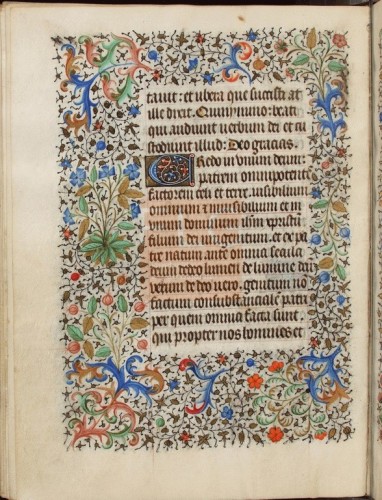 tauit: et ubera que suxisti at
ille dixit. Quinymmo: beati
qui audiunt verbum dei et cu
stodiunt illud: Deo gracias.
Credo in vnum deum:
patrem omnipotente
factorem celi et terre. uisibilium
omnium et inuisibilium et in
vnum dominum ihm xpristu
filium dei unigenitum. et ex pa
tre natum ante omnia secula
deum de deo lumen de lumine deu
verum de deo uero. genitum no
factum consubstancialem patri
per quem omnia facta sunt.
Qui propter nos homines et